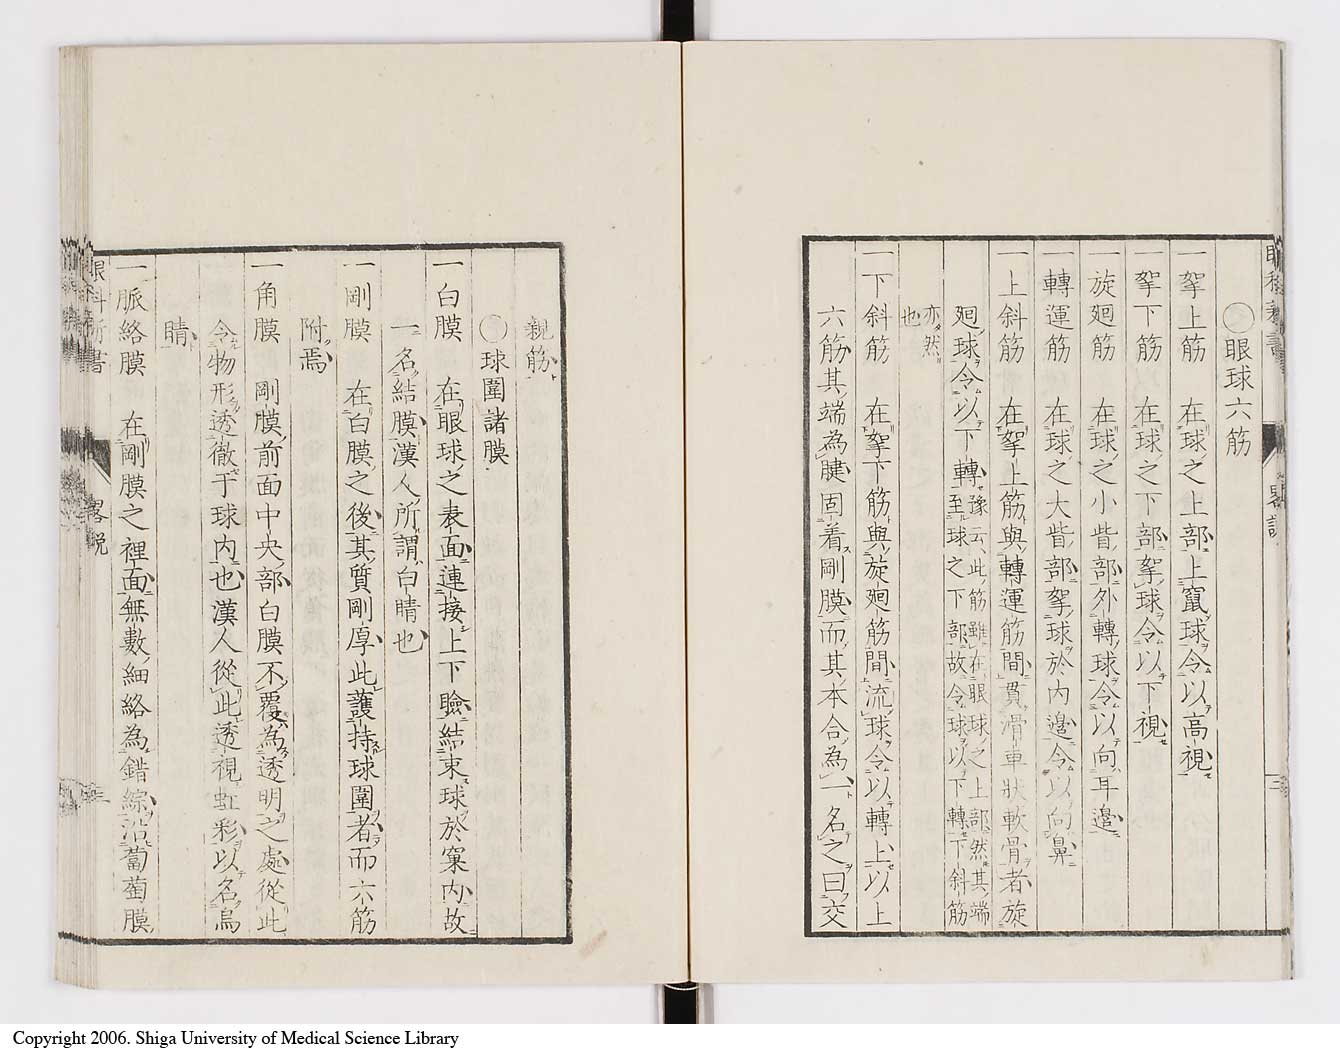 〇眼球六筋
一挐上筋　在球之上部上竄球令以高視
一挐下筋　在球之下部挐球令以下視
一旋廻筋　在球之小眥部外轉球令以向耳邉
一轉運筋　在球之大眥部挐球於内邉令以向鼻
一上斜筋　在挐上筋與轉運筋間貫滑車狀軟骨者旋
廻球令以下轉豫云此筋雖在眼球之上部然其端
至球之下部故令球以下轉下斜筋
亦然
也
一下斜筋　在挐下筋與旋廻筋間流球令以轉上以上
六筋其端為腱固着剛膜而其本合為一名之曰交
親筋
〇球圍諸膜
一白膜　在眼球之表面連接上下瞼結束球於窠内故
一名結膜漢人所謂白睛也
一剛膜　在白膜之後其質剛厚此護持球圍者而六筋
附焉
一角膜　剛膜前面中央部白膜不覆為透明之處從此
令物形透徹于球内也漢人從此透視虹彩以名烏
睛
一脈絡膜　在剛膜之裡面無數細絡為錯綜沿葡萄膜
眼科新書
畧説
三
Copyright 2006. Shiga University of Medical Science Library